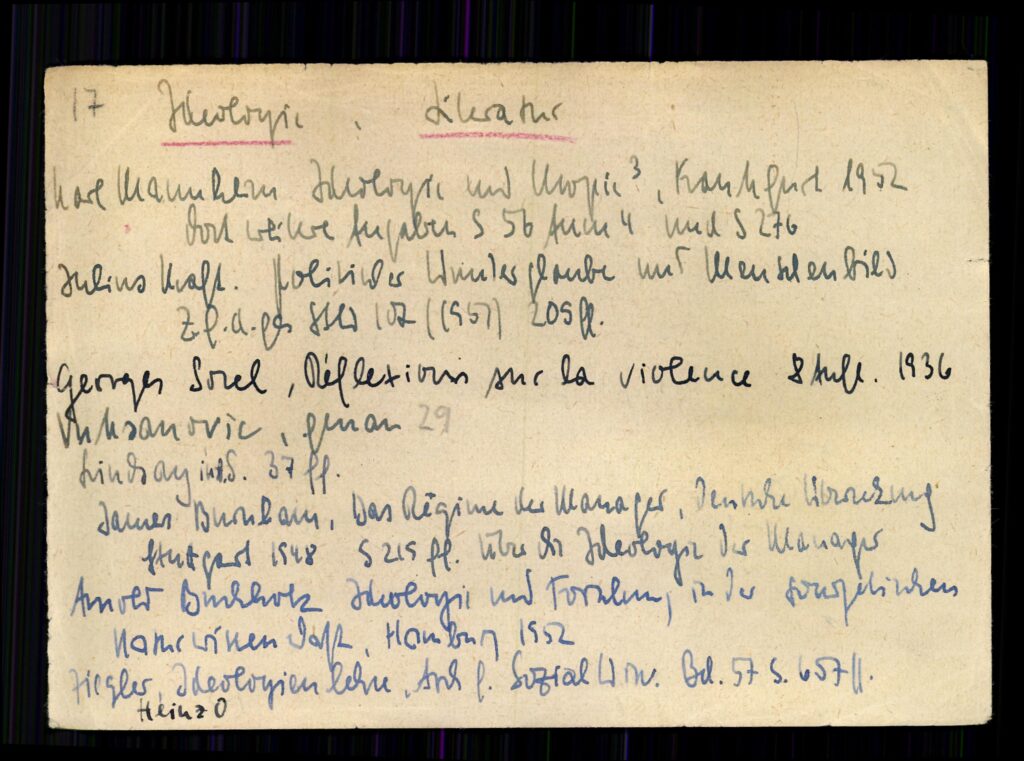 17 Ideologie , Literatur
Karl Mannheim Ideologie und Utopie³, Frankfurt 1952
dort weitere Angaben S 56 Anm 4 und S 276
Julius Kraft. Politischer Wunderglaube und Menschenbild
Z.f.d.ges StW 107 (1951) 209ff.
Georges Sorel, Réflexions sur la violence 8 Aufl. 1936
Vuksanovic, genau 29
Lindsay S. 37 ff.
James Burnham, Das Régime der Manager, Deutsche Übersetzung
Stuttgart 1948 S 215 ff. Über die Ideologie der Manager
Arnold Buchholz Ideologie und Forschung in der sowjetischen
Naturwissenschaft, Hamburg 1952
Ziegler, Ideologienlehre, Arch f. Sozial Wiss. Bd. 57 S. 657ff.
Heinz O